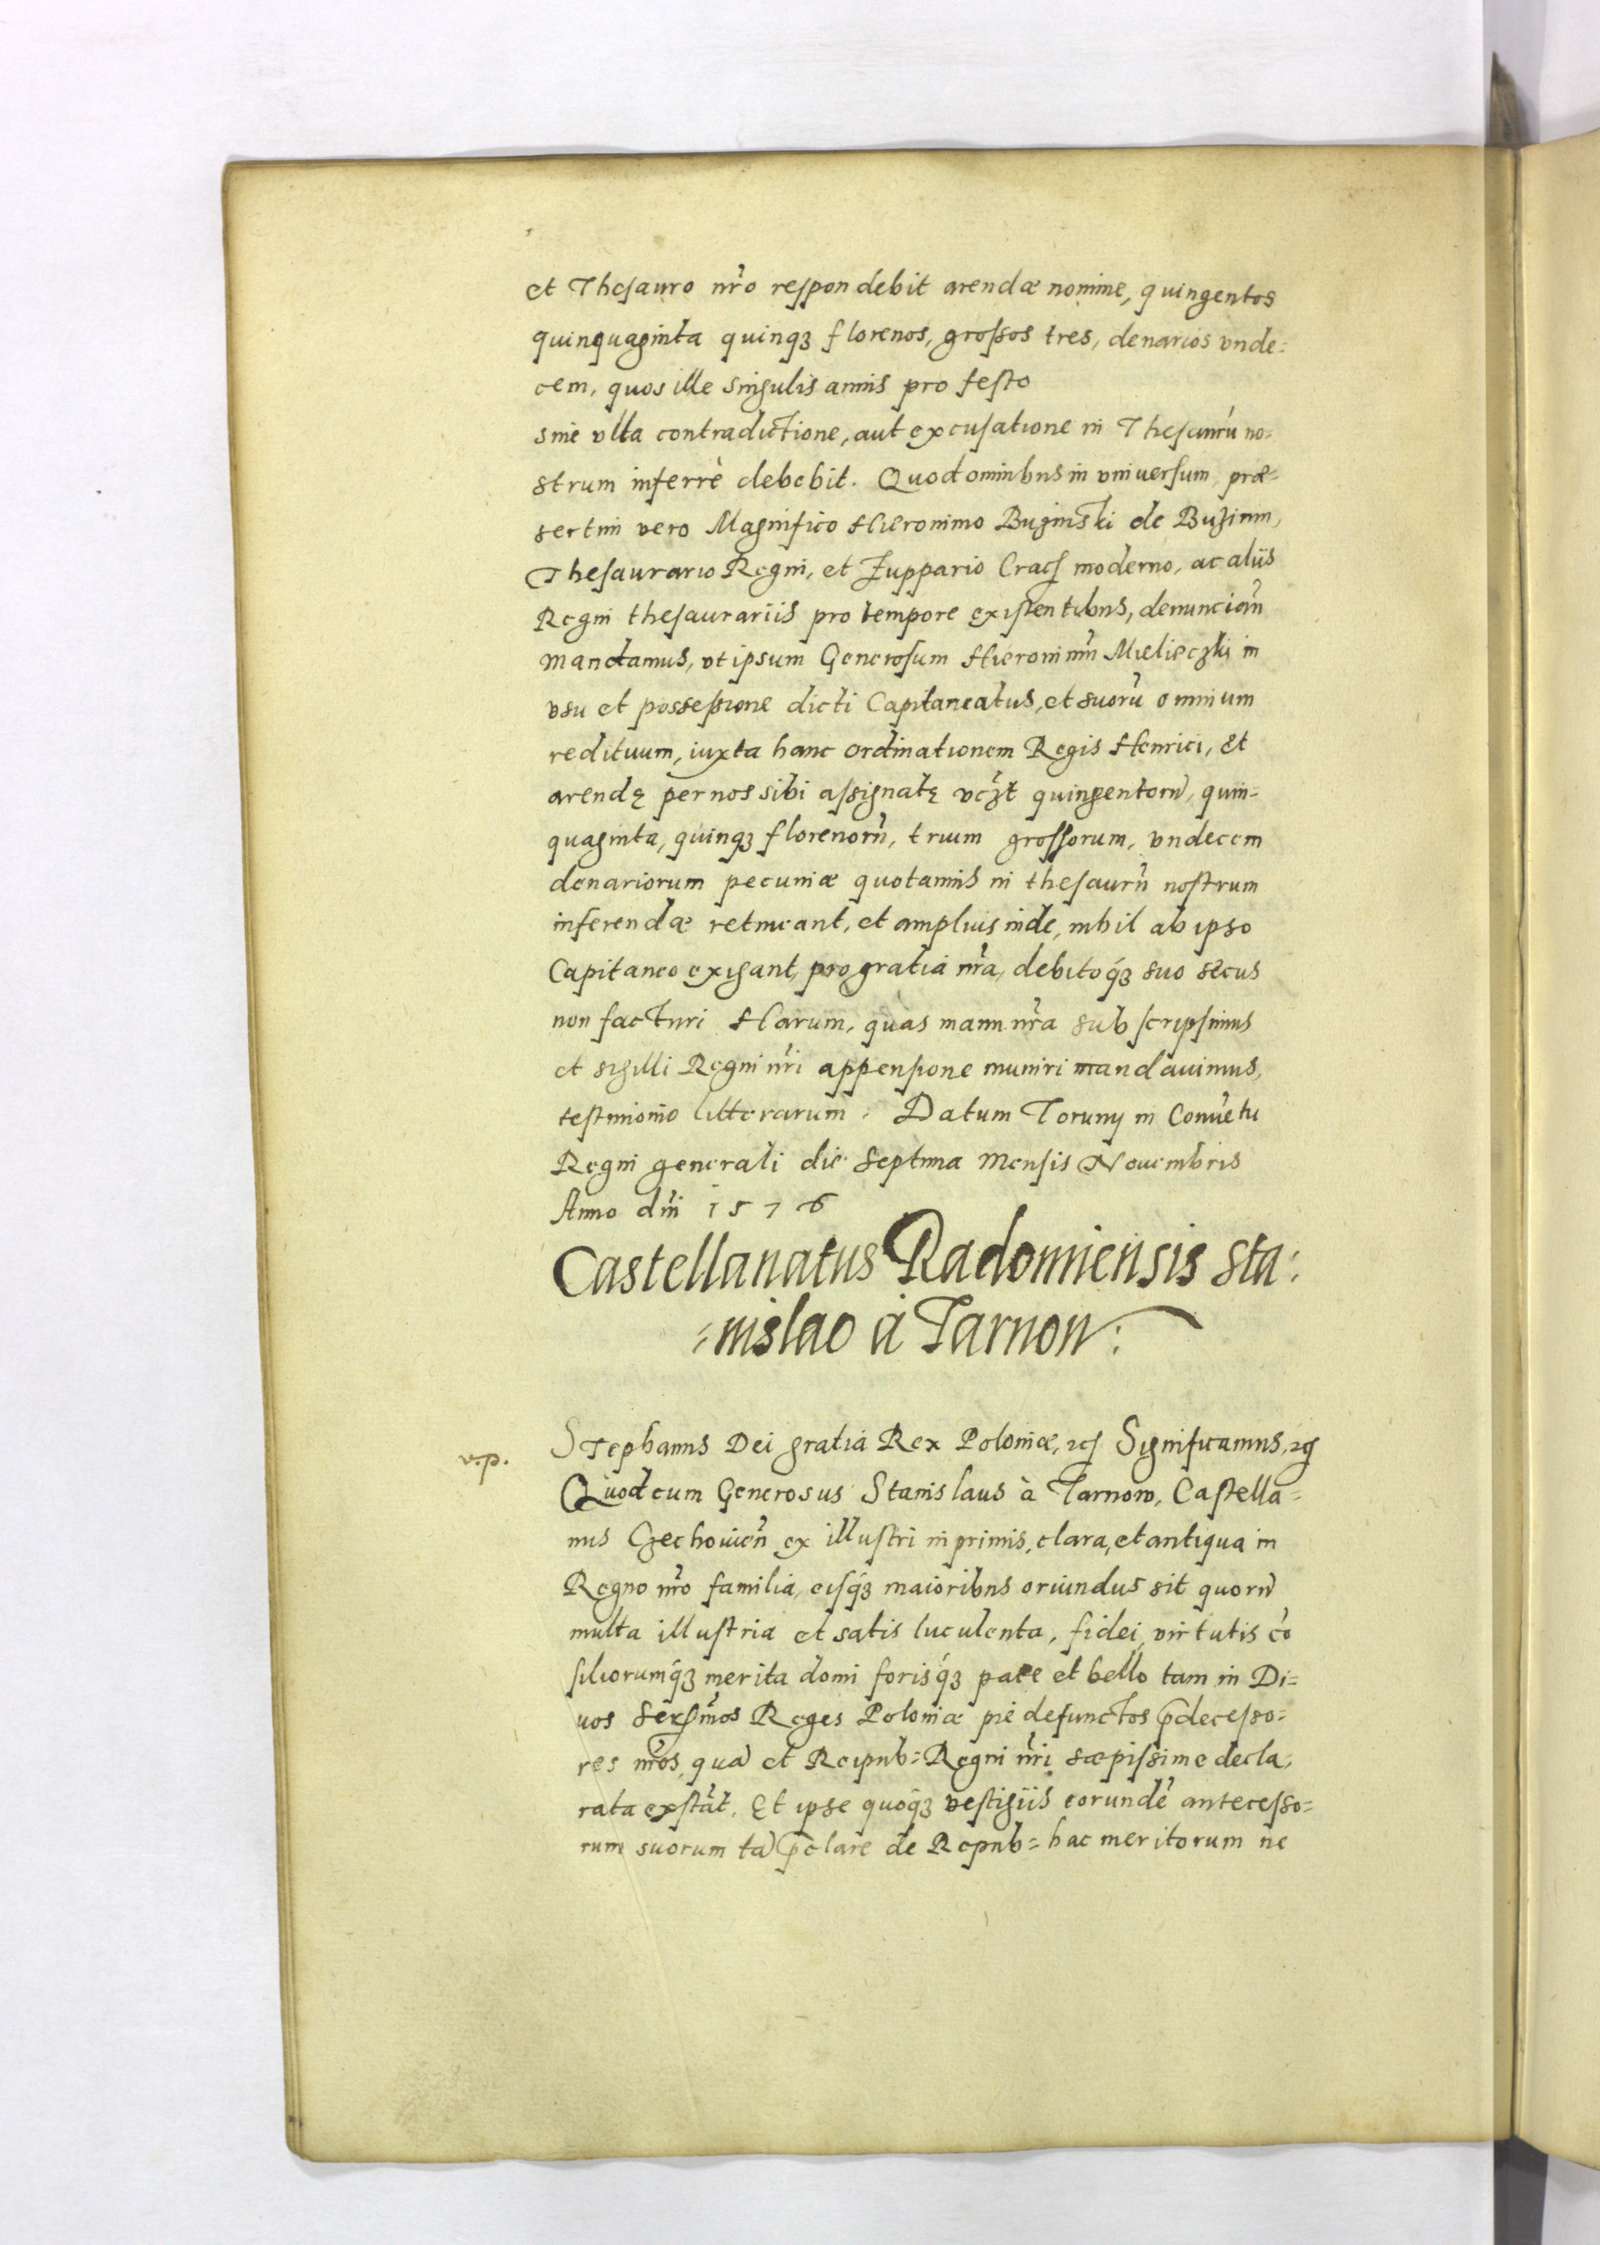 et Thesauro nr̃o respondebit arendæ nomine, quingentos
quinquaginta quinqꝫ florenos, grossos tres, denarios vnde=
cem, quos ille singulis annis pro festo
sine vlla contradictione, aut excusatione in Thesaurũ no=
strum inferrè debebit. Quod omnibus in vniuersum, præ=
sertim vero Magnifico Hieronimo Buzinski de Buzinin,
Thesaurario Regni, et Zuppario Cracȝ moderno, ac aliis
Regni thesaurariis pro tempore existentibus, denuncian̄
mandamus, vt ipsum Generosum Hieronimũ Mielieczki in
vsu et possessione dicti Capitaneatus, et suorũ omnium
redituum, iuxta hanc ordinationem Regis Henrici, Et
arendę per nos sibi assignatę vcz̃t quingentorũ, quin=
quaginta, quinqꝫ florenorũ, trium grossorum, vndecem
denariorum pecuniæ quotannis in thesaurũ nostrum
inferendæ retineant, et amplius inde, nihil ab ipso
Capitaneo exigant, pro gratia nr̃a, debitoqꝫ suo secus
non facturi Harum, quas manu nr̃a subscripsimus
et sigilli Regni nr̃i appensione muniri mandauimus,
testimonio litterarum. Datum Toruny in Conuẽtu
Regni generali die Septima Mensis Nouembris
Anno dñi 1576
Castellanatus Radomiensis Sta=
=nislao à Tarnow:
v.p.
Stephanus Dei gratia Rex Poloniæ, ꝛcȝ Significamus, ꝛcȝ
Quod cum Generosus Stanislaus à Tarnow, Castella=
nus Czechouien̄ ex illustri in primis, clara, et antiqua in
Regno nr̃o familia, eisqꝫ maioribus oriundus sit quorũ
multa illustria et satis luculenta, fidei, virtutis cõ
siliorumqꝫ merita domi forisqꝫ pace et bello tam in Di=
uos Serꝫm̃os Reges Poloniæ piè defunctos p̃decesso=
res nr̃os, quã et Reipub= Regni nr̃i sæpissime decla,
rata exstãt. Et ipse quoqꝫ vestigiis eorundẽ antecesso=
rum suorum tã p̃clare de Repub= hac meritorum ne